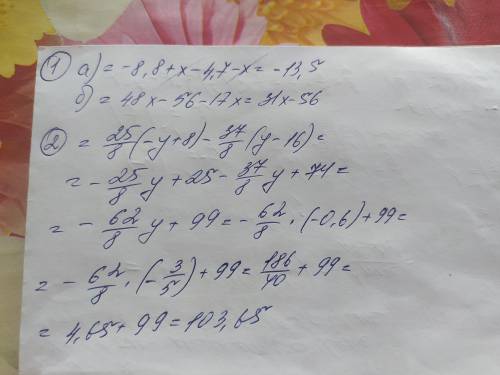 ① а) = -8,8+x-4,7-x = -13,5
б) = 48x-56-17x = 31x-56
② = 25/8 (-y+8) - 37/8 (y-16) =
= - 25/8 y + 25 - 37/8 y + 74 =
= - 62/8 y + 99 = - 62/8 · (-0,6) + 99 =
= - 62/8 · (- 3/5) + 99 = 186/40 + 99 =
= 4,65 + 99 = 103,65